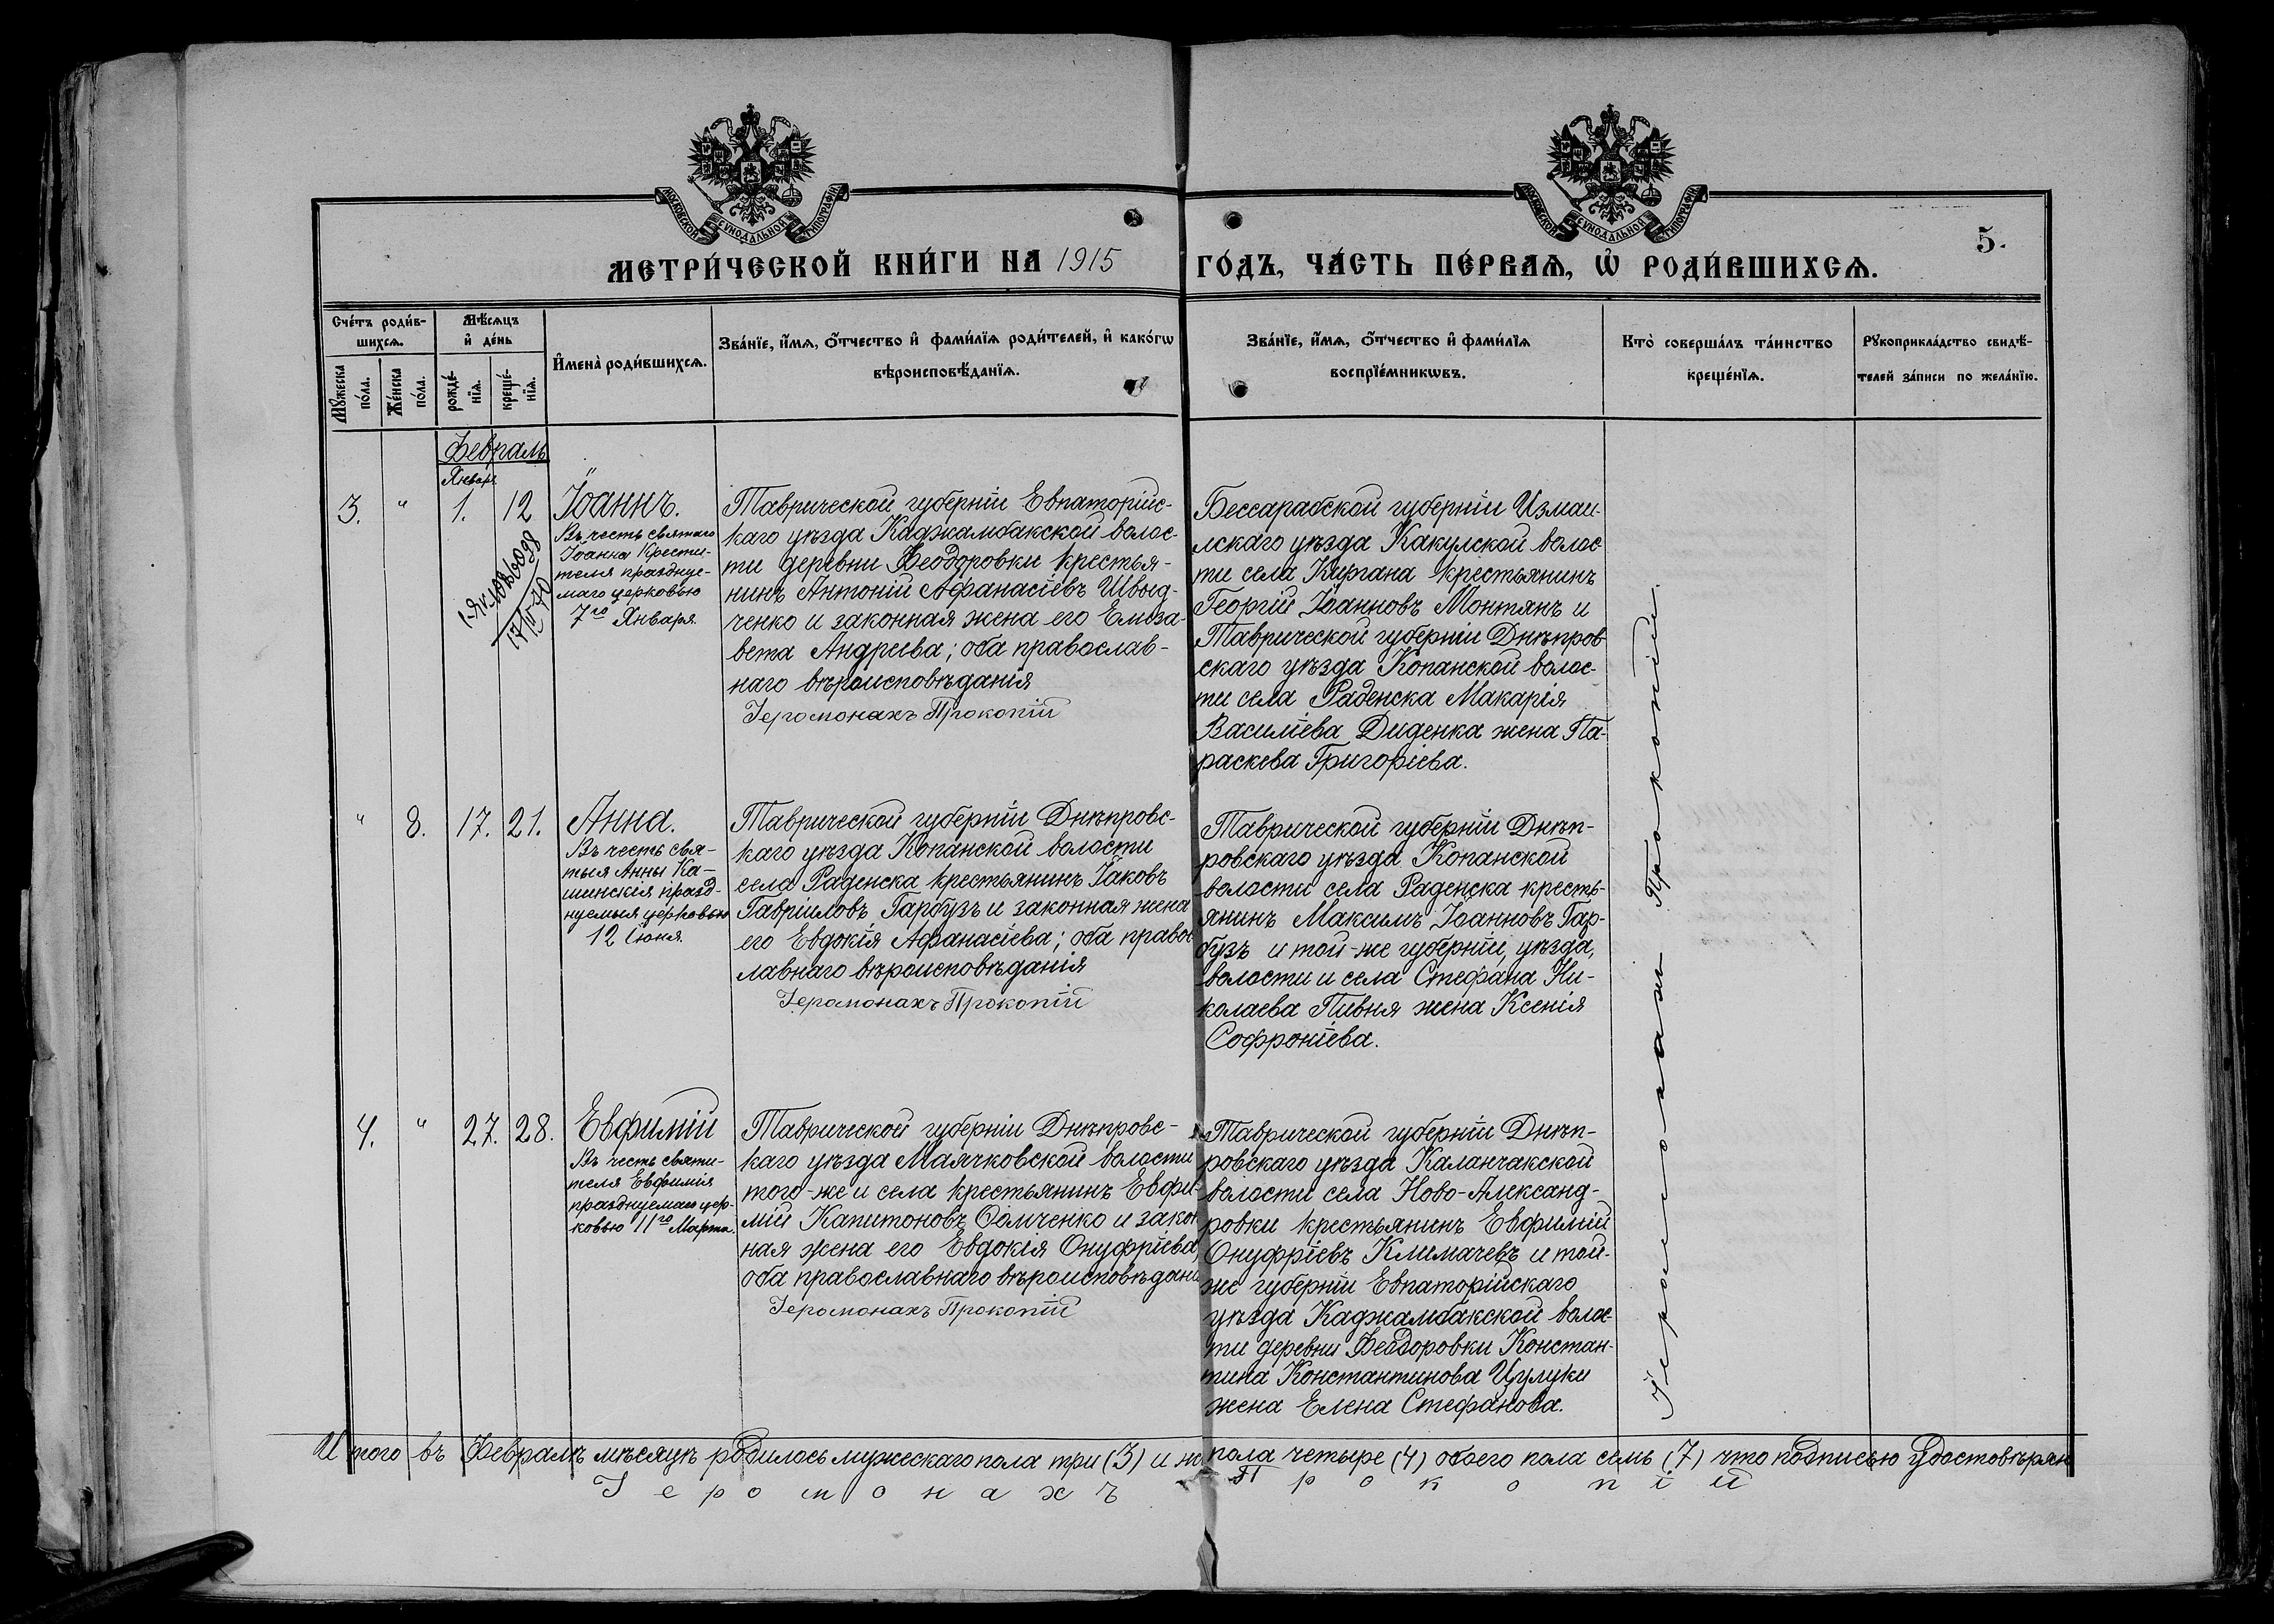 МОСКОВСКОЙ СУНОДАЛЬНОЙ ТИПОГРАФІИ
МОСКОВСКОЙ СУНОДАЛЬНОЙ ТИПОГРАФІИ
5.
МЕТРИ́ЧЕСКОЙ КНИ́ГИ НА 1915 ГО́ДЪ, ЧА́СТЬ ПЕ́РВАѦ, Ѡ РОДИ́ВШИХСѦ.
Сче́тъ роди́в-
шихсѧ.
Мꙋ́жеска по́ла.
Же́нска по́ла.
Мѣ́сѧцъ
и҆ де́нь
рожде́-
нїѧ.
креще́-
нїѧ.
И҆мена̀ роди́вшихсѧ.
Зва́нїе, и҆́мѧ, ѻ҆́тчество и҆ фами́лїѧ роди́телей, и҆ како́гѡ
вѣроисповѣ́данїѧ.
Зва́нїе, и҆́мѧ, ѻ҆́тчество и҆ фами́лїѧ
воспрїе́мникѡвъ.
Кто̀ соверша́лъ та́инство
креще́нїѧ.
Рꙋкоприкла́дство свидѣ́-
телей за́писи по жела́нїю.
Февраль
Январь
3. " 1. 12
Іоаннъ.
Въ честь святаго
Іоанна Крести-
теля праздуе-
маго церковью
7го Января
Таврической губерніи Евпаторійс-
каго уѣзда Каджамбакской волос-
ти деревни Ѳеодоровки крестья-
нинъ Антоній Афанасіевъ Швыд-
ченко и законная жена его Елиза-
вета Андреева; оба православ-
наго вѣроисповѣданія
Іеромонахъ Прокопій
Бессарабской губерніи Измаи-
лскаго уѣзда Какулской волос
ти села Киргана крестьянинъ
Георгій Іоанновъ Монтянъ и
Таврической губерніи Днѣпров
скаго уѣзда Копанской волос-
ти села Раденска Макарія
Василіева Диденка жена Па-
раскева Григоріева.
" 8. 17. 21.
Анна.
Въ честь свя-
тыя Анны Ка-
шинскія празд-
нуемыя церковью
12 Іюня.
Таврической губерніи Днѣпровс-
каго уѣзда Копанской волости
села Раденска крестьянинъ Іаковъ
Гавріиловъ Гарбузъ и законная жена
его Евдокія Афанасіева; оба правос
лавнаго вѣроисповѣданія
Іеромонахъ Прокопій
Таврической губерніи Днѣп-
ровскаго уѣзда Копанской
волости села Раденска кресть-
янинъ Максимъ Іоанновъ Гар-
бузъ и той-же губерніи, уѣзда,
волости и села Стефана Ни-
колаева Пивня жена Ксенія
Софроніева.
4. " 27. 28.
Евфимій
Въ честь святи-
теля Евфимія
празднуемаго цер-
ковью 11го Марта.
Таврической губерніи Днѣпровс-
каго уѣзда Маячковской волости
того-же и села крестьянинъ Евфи-
мій Капитоновъ Ѳомченко и закон
ная жена его Евдокія Онуфріева,
оба православнаго вѣроисповѣдані
Іеромонахъ Прокопій
Таврической губерніи Днѣп-
ровскаго уѣзда Каланчакской
волости села Ново-Александ-
ровки крестьянинъ Евфимій
Онуфріевъ Климачевъ и той-
же губерніи Евпаторійскаго
уѣзда Каджамбакской волос-
ти деревни Ѳеодоровки Констан-
тина Константинова Цулуки
жена Елена Стефанова.
Іеромонахъ Прокопій
Итого въ Февралѣ мѣсяцѣ родилось мужескаго пола три (3) и ж пола четыре (4) обоего пола семь (7) что подписью удостовѣряю
Іеромонахъ Прокопій